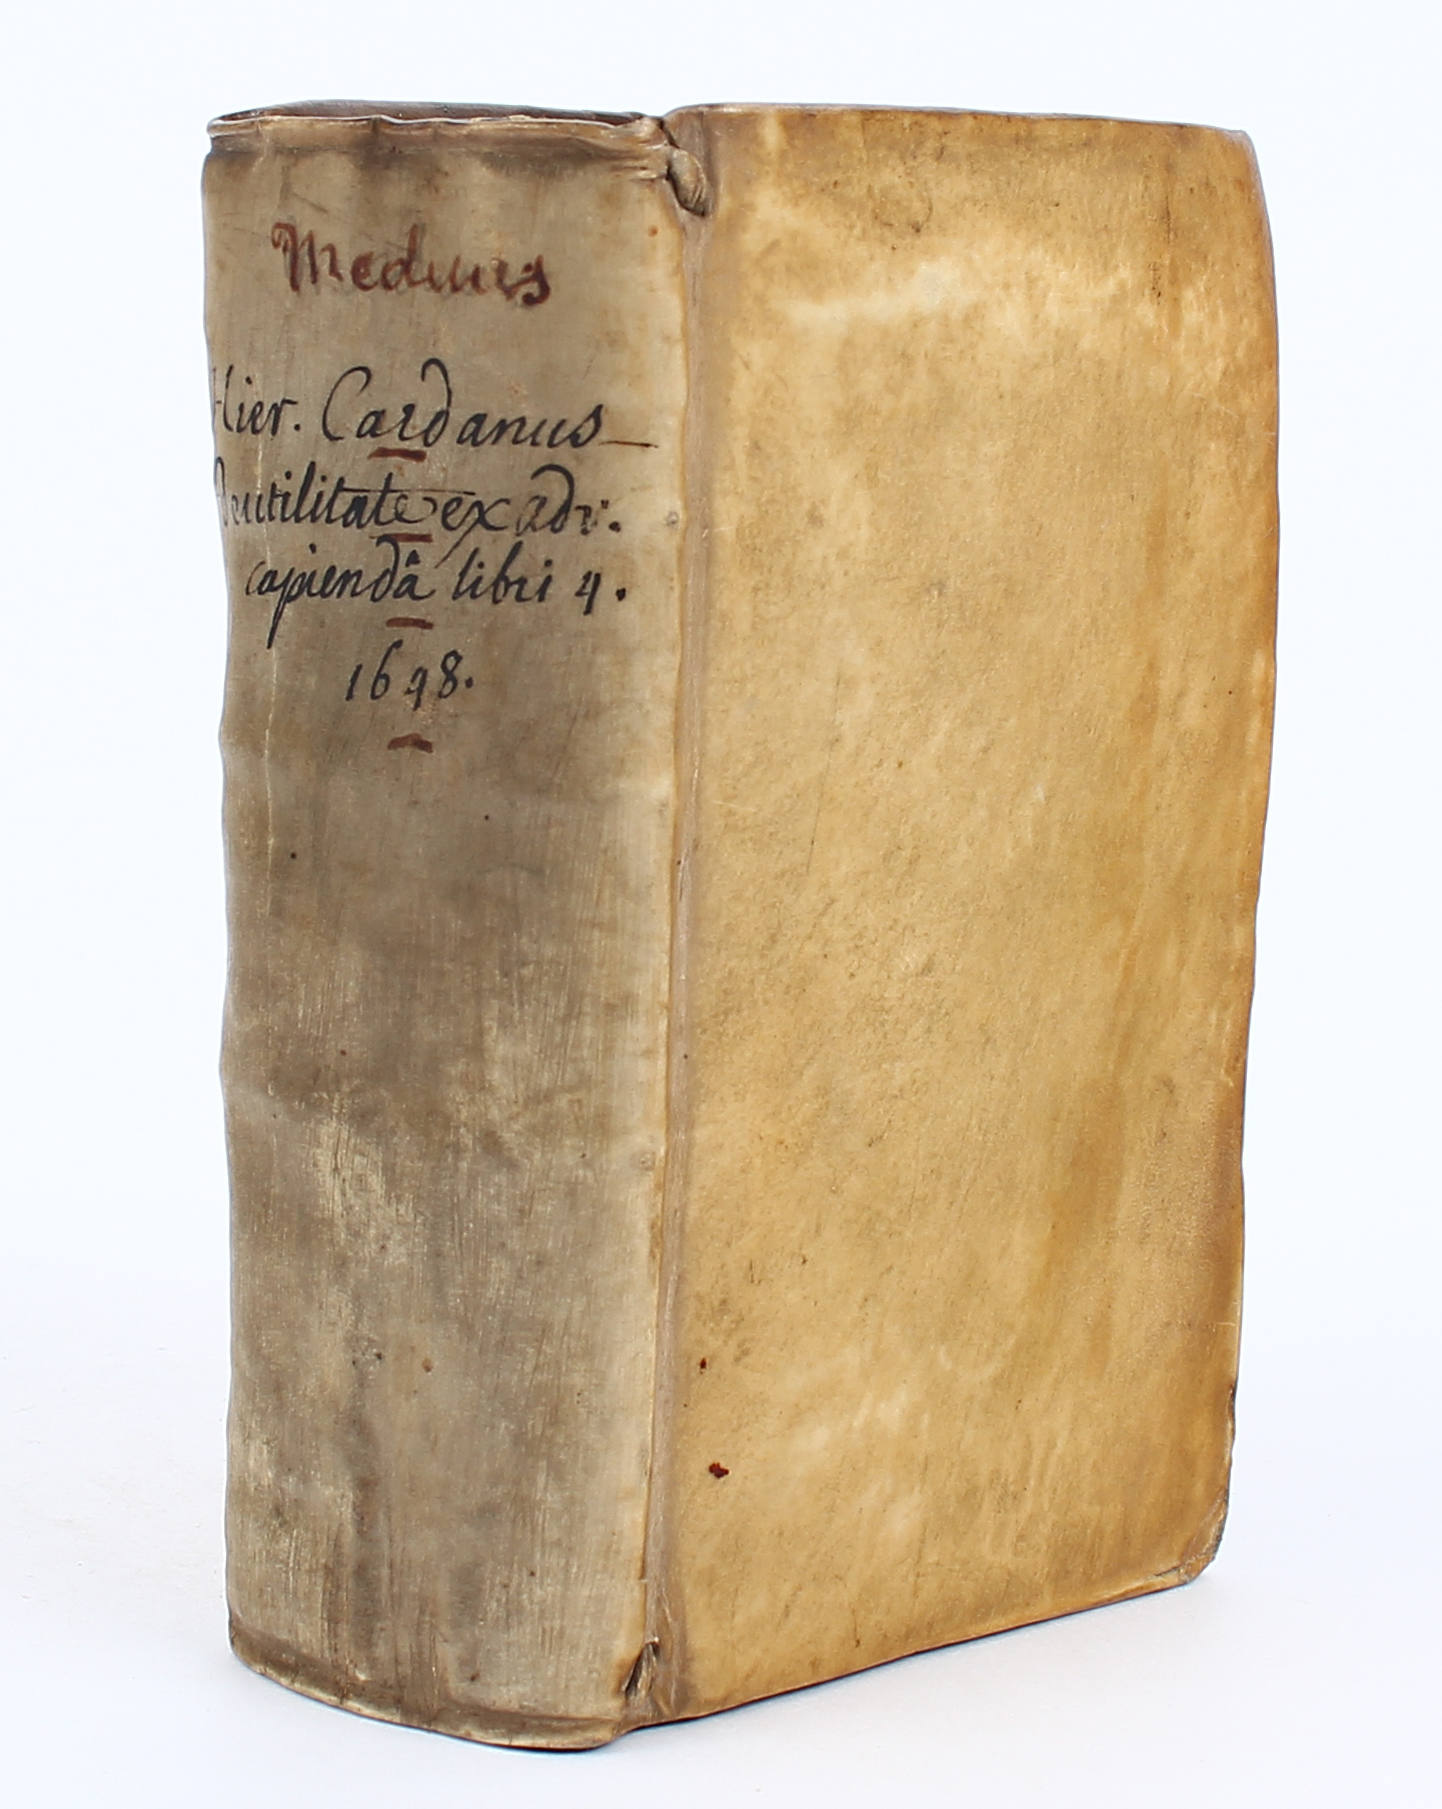 Medicus
Hier. Cardanus
De utilitate ex adv.
capiendâ libri 4.
1648.